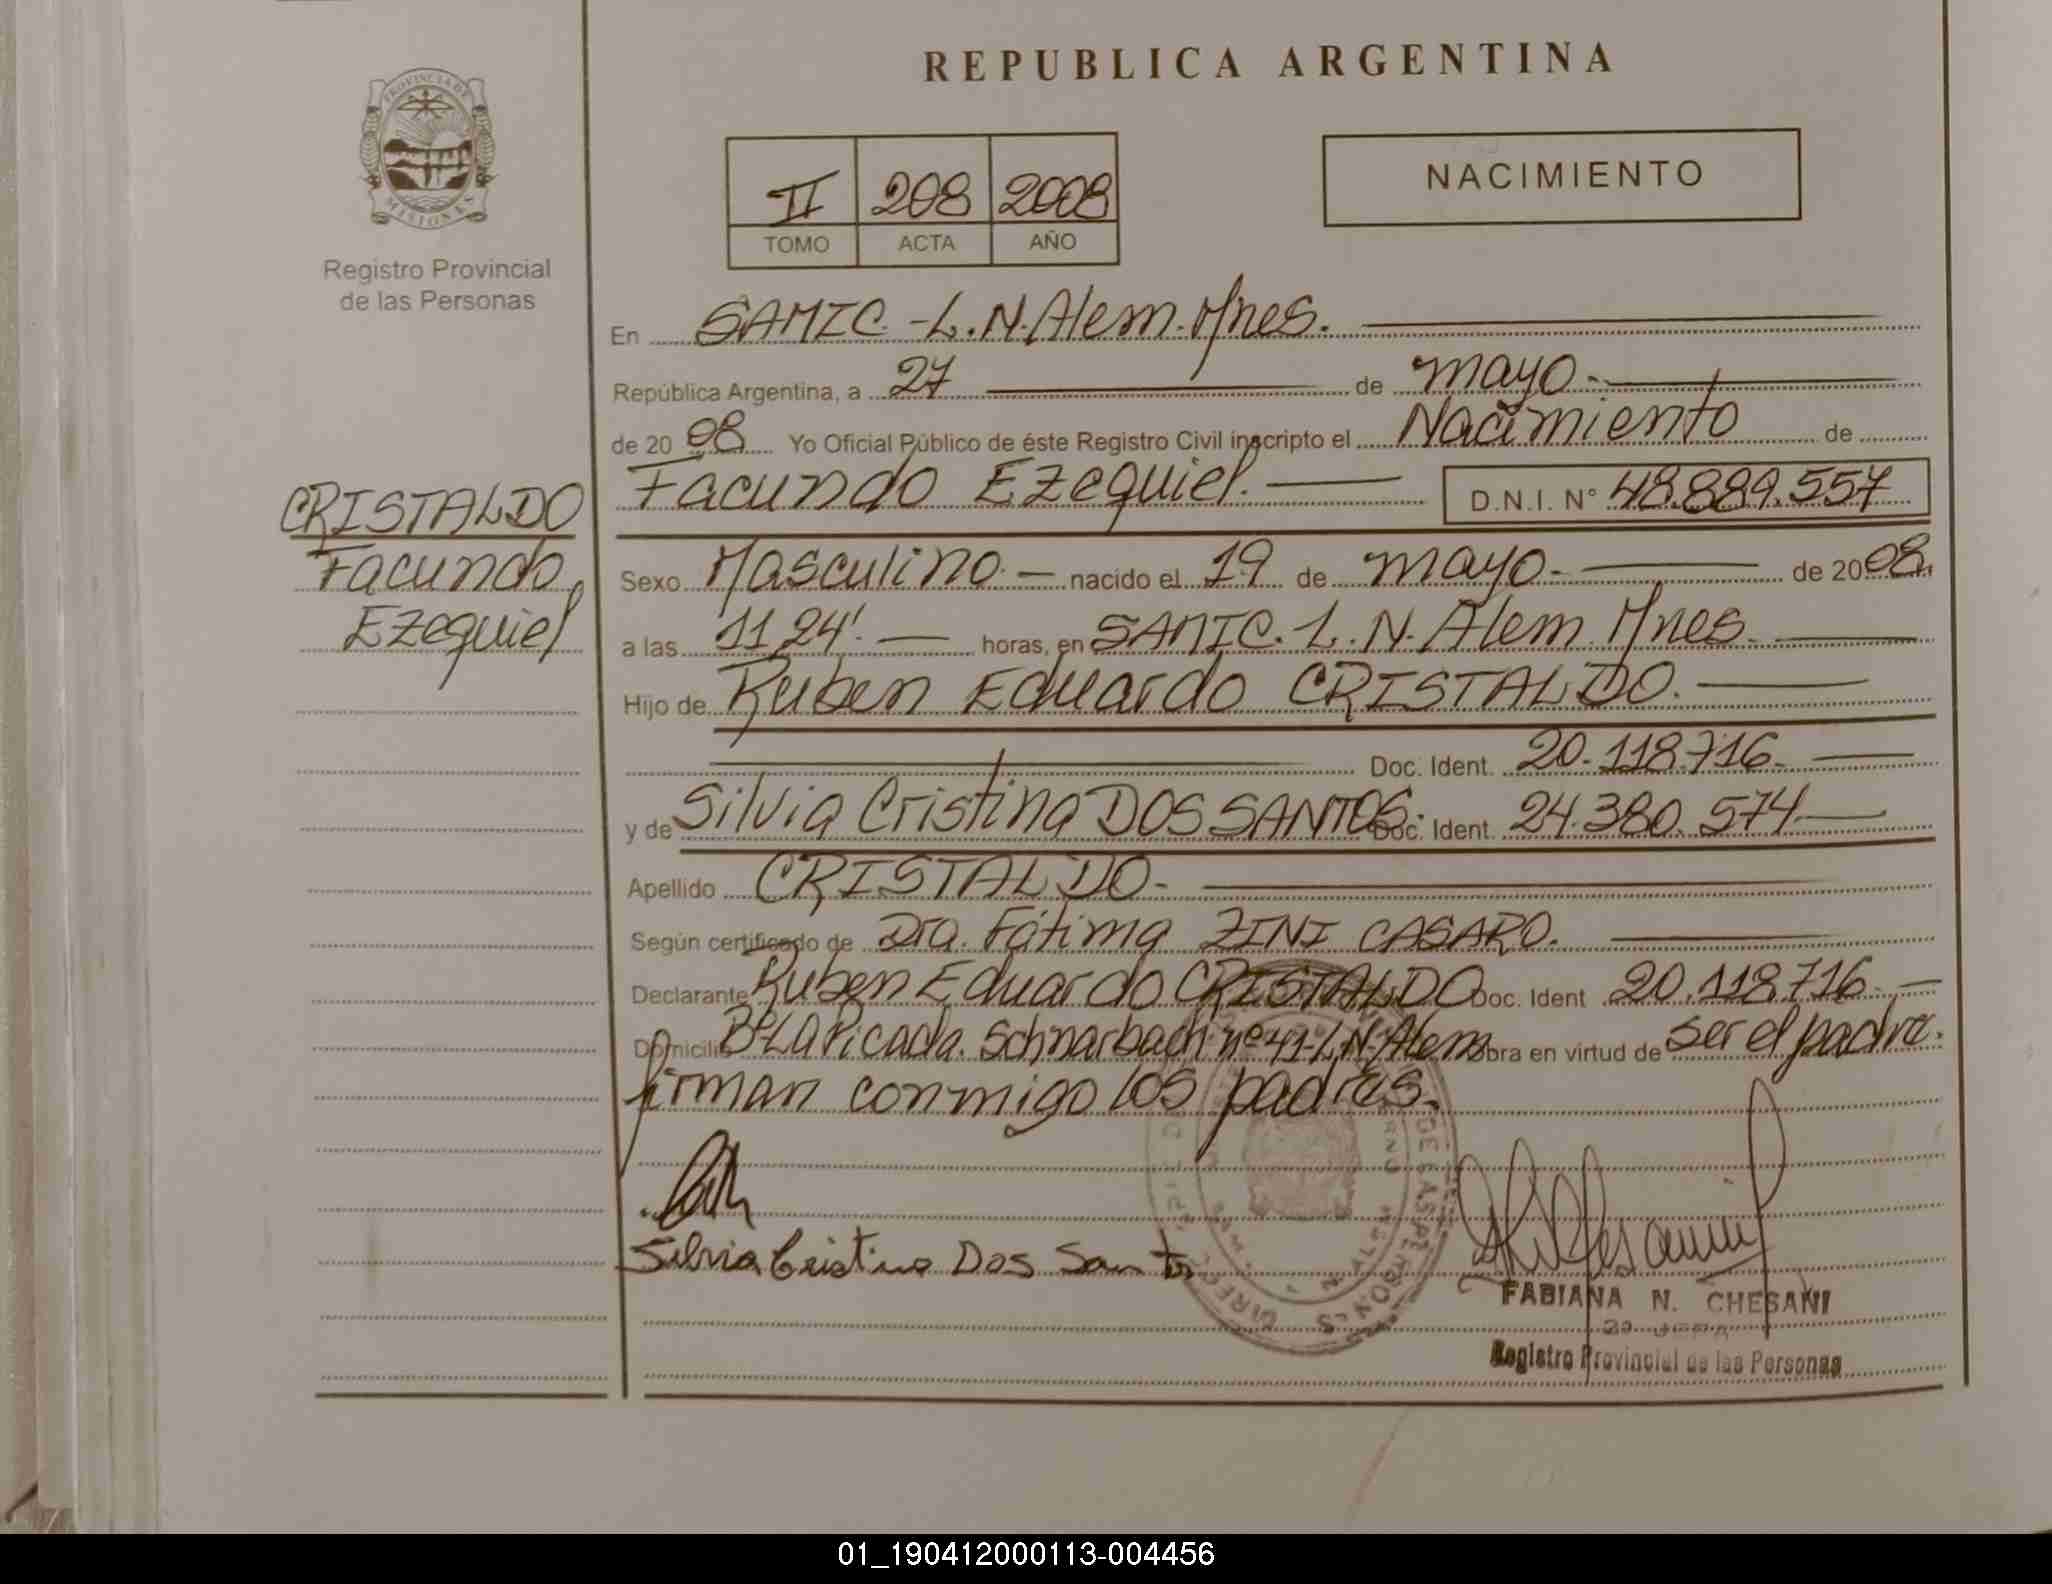 REPUBLICA ARGENTINA
PROVINCIA DE
MISIONES
Registro Provincial
de las Personas
II 208 2008
TOMO ACTA AÑO
NACIMIENTO
En SAMIC.-L.N.Alem.Mnes.
República Argentina, a 27 de mayo.-
de 2008 Yo Oficial Público de éste Registro Civil inscripto el Nacimiento de
Facundo Ezequiel. D.N.I. N° 48.889.557
CRISTALDO
Facundo
Ezequiel
Sexo Masculino.- nacido el 19 de mayo.- de 2008,
a las 11 24'. horas, en SAMIC. L.N. Alem. Mnes.
Hijo de Ruben Eduardo CRISTALDO.
Doc. Ident. 20.118.716.
y de Silvia Cristina DOS SANTOS. Doc. Ident. 24.380.574.
Apellido CRISTALDO.-
Según certificado de Dra. Fátima ZINI CASARO.
Declarante Ruben Eduardo CRISTALDO Doc. Ident 20.118.716.-
Domicilio Bº La Picada. Schnarbach nº 41-L.N. Alem Obra en virtud de ser el padre.
firman conmigo los padres.
Silvia Cristina Dos Santos
FABIANA N. CHESANI
Registro Provincial de las Personas
01_190412000113-004456